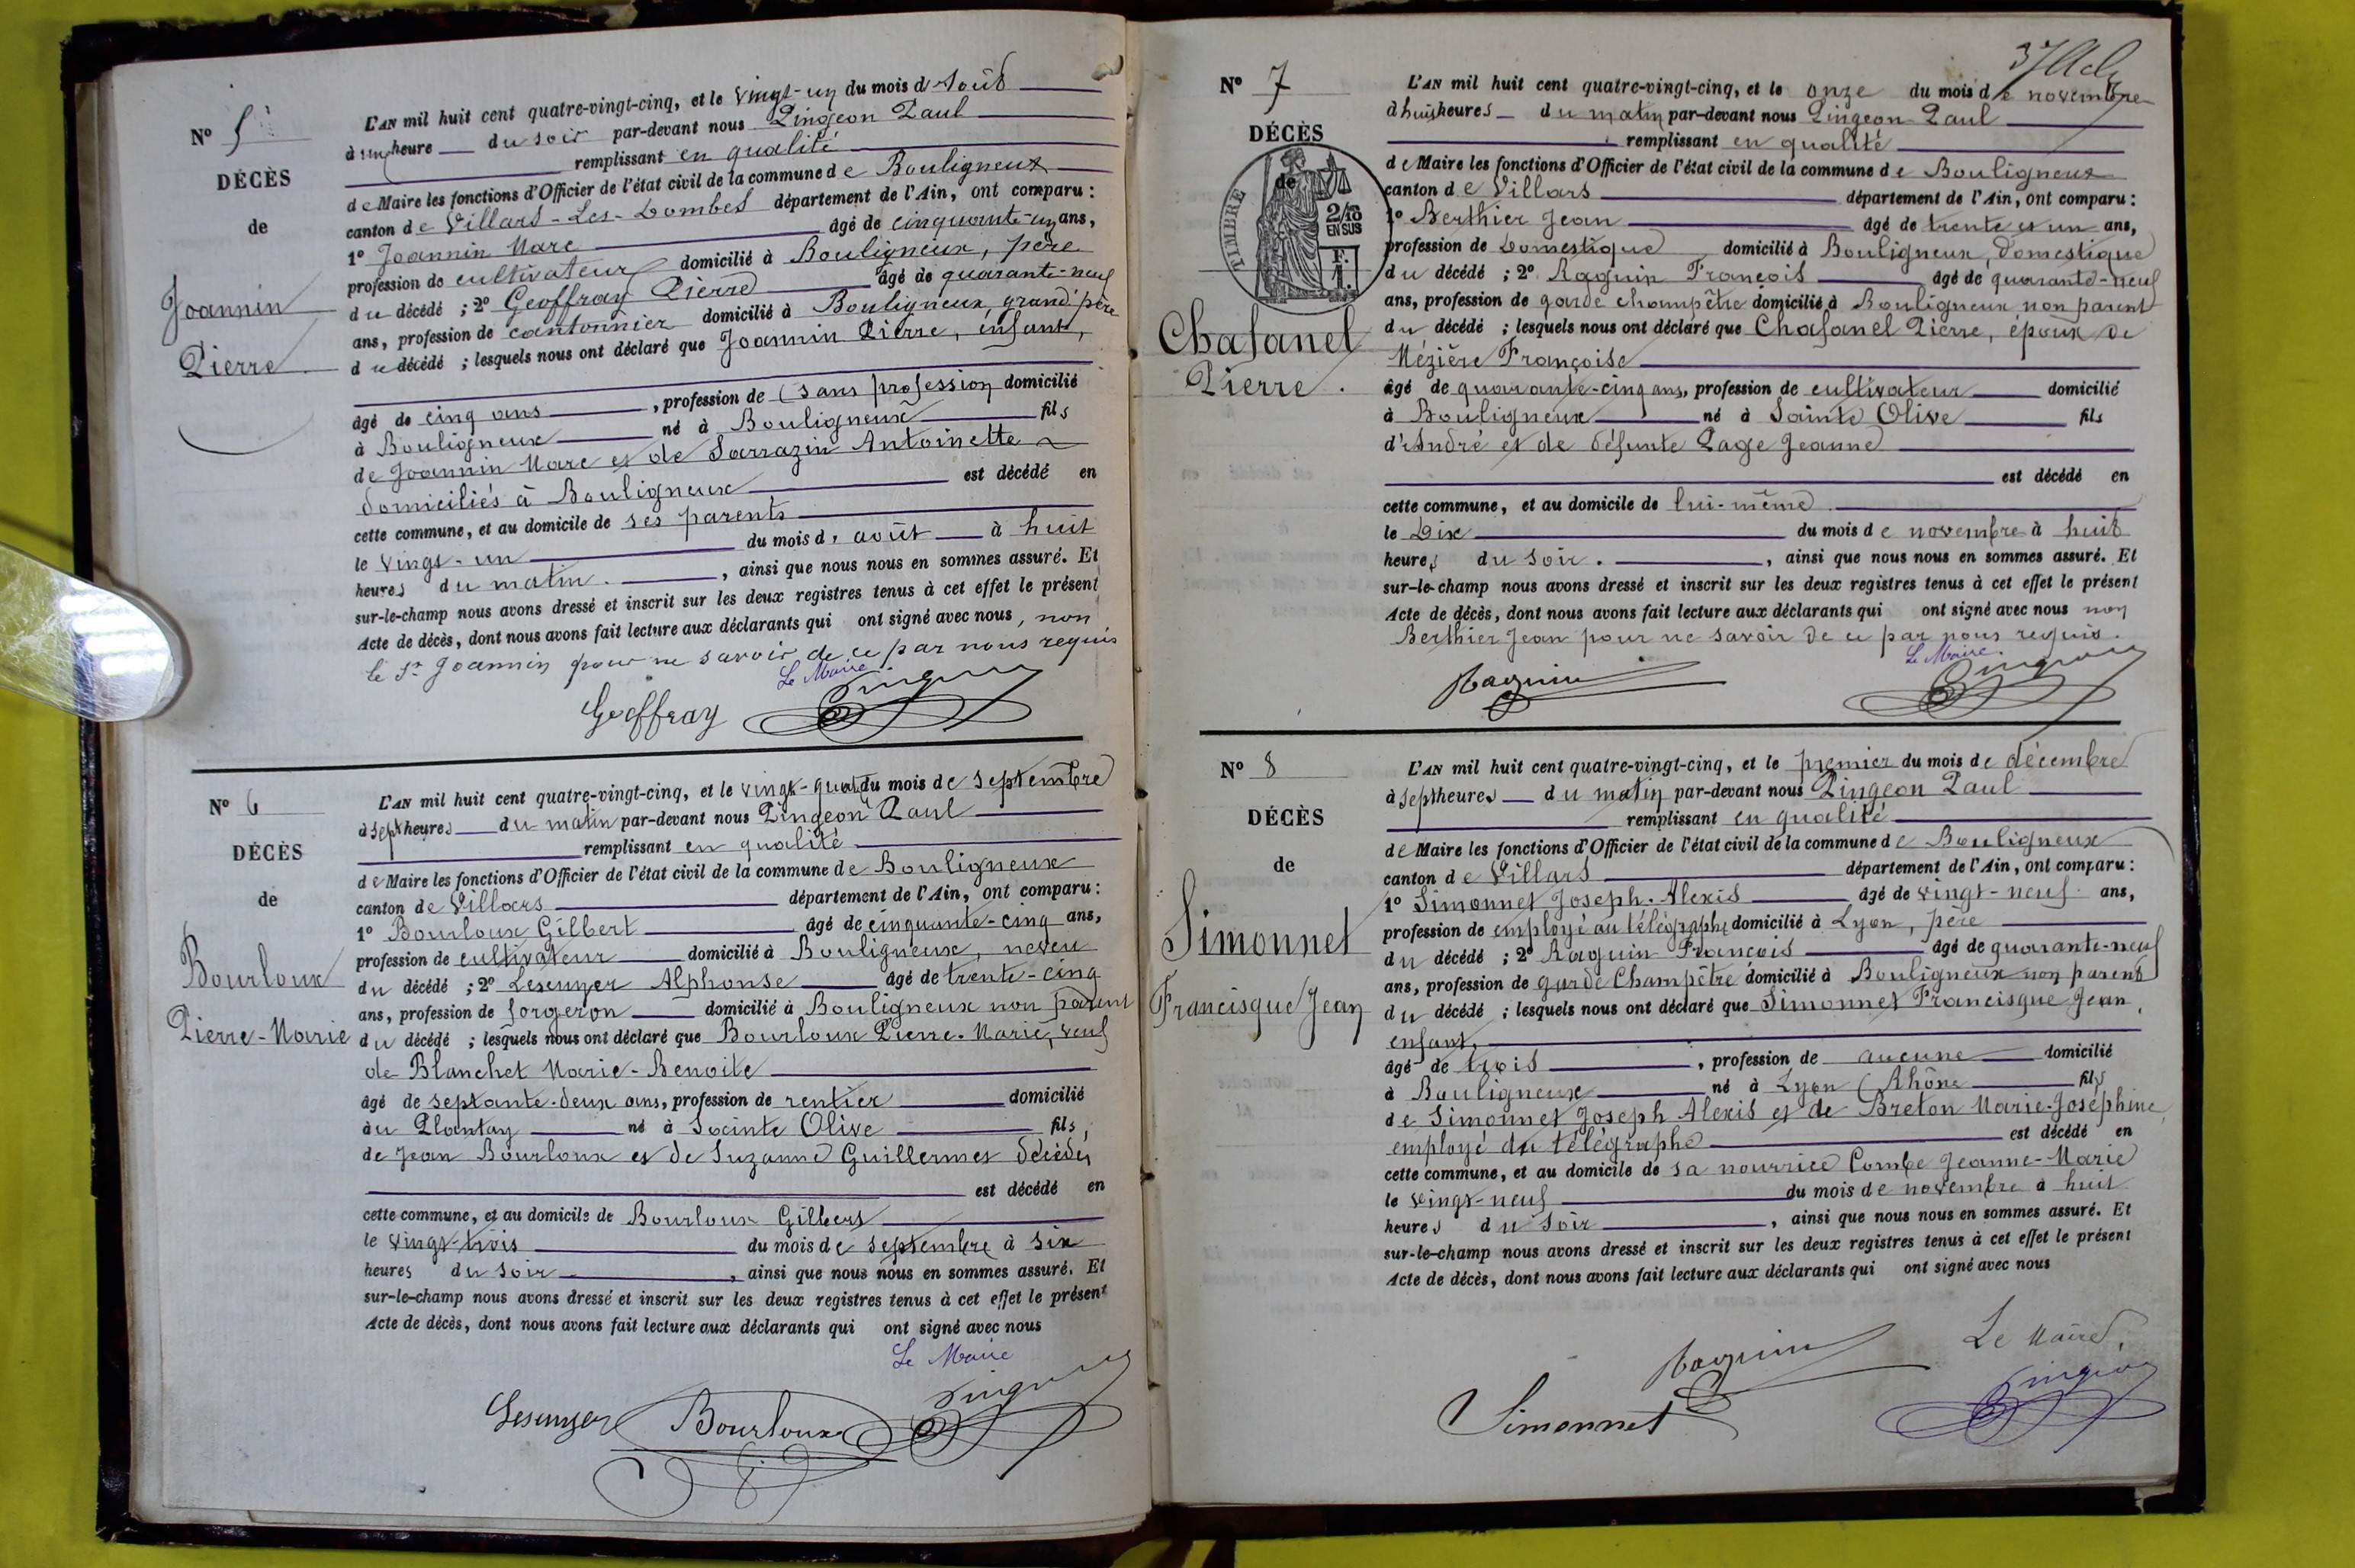 N° 5
DÉCÈS
de
Joannin
Pierre
L'AN mil huit cent quatre-vingt-cinq, et le vingt-un du mois d'Août
à une heure du soir par-devant nous Pingeon Paul
remplissant en qualité
de Maire les fonctions d'Officier de l'état civil de la commune de Bouligneux
canton de Villars-Les-Dombes département de l'Ain, ont comparu :
1° Joannin Marc âgé de cinquante-un ans,
profession de cultivateur domicilié à Bouligneux, père
du décédé ; 2° Geoffray Pierre âgé de quarante-neuf
ans, profession de cantonnier domicilié à Bouligneux, grand'père
du décédé ; lesquels nous ont déclaré que Joannin Pierre, enfant,
âgé de cinq ans, profession de (sans profession domicilié
à Bouligneux né à Bouligneux fils
de Joannin Marc et de Sarrazin Antoinette
domiciliés à Bouligneux est décédé en
cette commune, et au domicile de ses parents
le vingt-un du mois d'août à huit
heures du matin. , ainsi que nous nous en sommes assuré. Et
sur-le-champ nous avons dressé et inscrit sur les deux registres tenus à cet effet le présent
Acte de décès, dont nous avons fait lecture aux déclarants qui ont signé avec nous, non
le Sr Joannin pour ne savoir de ce par nous requis
Le Maire
Geoffray Pingeon
N° 6
DÉCÈS
de
Bourloux
Pierre-Marie
L'AN mil huit cent quatre-vingt-cinq, et le vingt-quatre du mois de septembre
à sept heures du matin par-devant nous Pingeon Paul
remplissant en qualité
de Maire les fonctions d'Officier de l'état civil de la commune de Bouligneux
canton de Villars département de l'Ain, ont comparu :
1° Bourloux Gilbert âgé de cinquante-cinq ans,
profession de cultivateur domicilié à Bouligneux, neveu
du décédé ; 2° Lescuyer Alphonse âgé de trente-cinq
ans, profession de forgeron domicilié à Bouligneux non parent
du décédé ; lesquels nous ont déclaré que Bourloux Pierre-Marie, veuf
de Blanchet Marie-Benoite
âgé de septante-deux ans, profession de rentier domicilié
au Plantay né à Sainte Olive fils,
de Jean Bourloux et de Suzanne Guillermet décédés
est décédé en
cette commune, et au domicile de Bourloux Gilbert
le vingt-trois du mois de septembre à six
heures du soir , ainsi que nous nous en sommes assuré. Et
sur-le-champ nous avons dressé et inscrit sur les deux registres tenus à cet effet le présent
Acte de décès, dont nous avons fait lecture aux déclarants qui ont signé avec nous
Le Maire
Lescuyer Bourloux Pingeon
N° 7
DÉCÈS
de
TIMBRE
2/10
EN SUS
F.
1.
Chafanel
Pierre.
L'AN mil huit cent quatre-vingt-cinq, et le onze du mois de novembre
à huit heures du matin par-devant nous Pingeon Paul
remplissant en qualité
de Maire les fonctions d'Officier de l'état civil de la commune de Bouligneux
canton de Villars département de l'Ain, ont comparu :
1° Berthier Jean âgé de trente et un ans,
profession de Domestique domicilié à Bouligneux, Domestique
du décédé ; 2° Raguin François âgé de quarante-neuf
ans, profession de garde champêtre domicilié à Bouligneux non parent
du décédé ; lesquels nous ont déclaré que Chafanel Pierre, époux de
Mézière Françoise
âgé de quarante-cinq ans, profession de cultivateur domicilié
à Bouligneux né à Sainte Olive fils
d'André et de défunte Page Jeanne
est décédé en
cette commune, et au domicile de lui-même
le Dix du mois de novembre à huit
heures du soir. , ainsi que nous nous en sommes assuré. Et
sur-le-champ nous avons dressé et inscrit sur les deux registres tenus à cet effet le présent
Acte de décès, dont nous avons fait lecture aux déclarants qui ont signé avec nous non
Berthier Jean pour ne savoir de ce par nous requis.
Le Maire.
Raguin Pingeon
N° 8
DÉCÈS
de
Simonnet
Francisque Jean
L'AN mil huit cent quatre-vingt-cinq, et le premier du mois de décembre
à sept heures du matin par-devant nous Pingeon Paul
remplissant en qualité
de Maire les fonctions d'Officier de l'état civil de la commune de Bouligneux
canton de Villars département de l'Ain, ont comparu :
1° Simonnet Joseph-Alexis âgé de vingt-neuf ans,
profession de employé au télégraphe domicilié à Lyon, père
du décédé ; 2° Raguin François âgé de quarante-neuf
ans, profession de garde Champêtre domicilié à Bouligneux non parent
du décédé ; lesquels nous ont déclaré que Simonnet Francisque Jean,
enfant,
âgé de trois , profession de aucune domicilié
à Bouligneux né à Lyon (Rhône fils
de Simonnet Joseph Alexis et de Breton Marie-Joséphine
employé du télégraphe est décédé en
cette commune, et au domicile de sa nourrice Combe Jeanne-Marie
le vingt-neuf du mois de novembre à huit
heures du soir , ainsi que nous nous en sommes assuré. Et
sur-le-champ nous avons dressé et inscrit sur les deux registres tenus à cet effet le présent
Acte de décès, dont nous avons fait lecture aux déclarants qui ont signé avec nous
Le Maire.
Raguin
Simonnet Pingeon